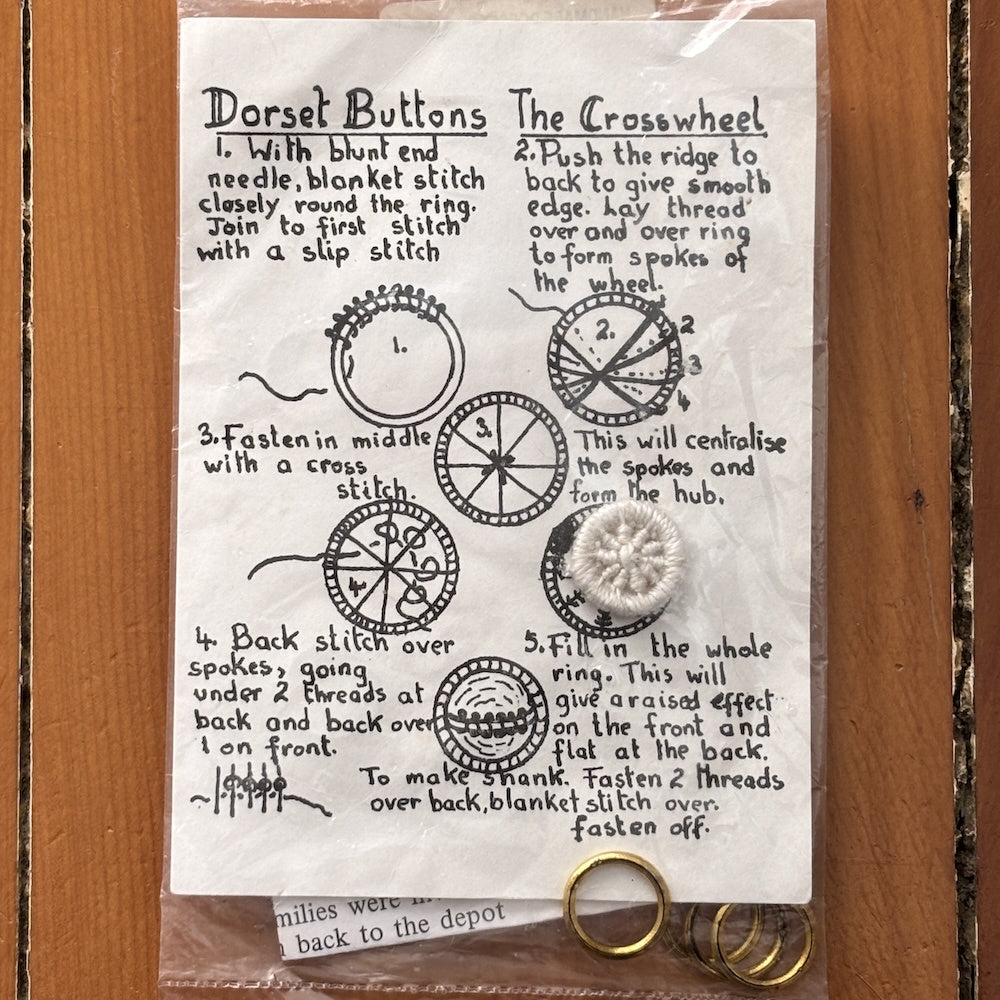 Dorset Buttons
The Crosswheel
1. With blunt end
needle, blanket stitch
closely round the ring.
Join to first stitch
with a slip stitch
2. Push the ridge to
back to give smooth
edge. Lay thread
over and over ring
to form spokes of
the wheel.
1.
2.
2
3
4
3. Fasten in middle
with a cross
stitch.
3.
This will centralise
the spokes and
form the hub.
4
4. Back stitch over
spokes, going
under 2 threads at
back and back over
1 on front.
5. Fill in the whole
ring. This will
give a raised effect
on the front and
flat at the back.
To make shank. Fasten 2 threads
over back, blanket stitch over.
fasten off.
milies were
back to the depot